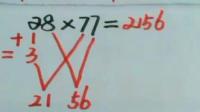 28×77=2156
+1
=3
21 56